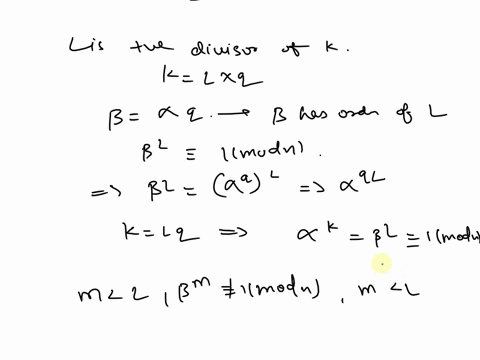 L is +ve divisor of k.
k = L × q
β = α q → β has order of L
β^L ≡ 1(mod n).
=> β^L = (α^q)^L => α^qL
k = Lq => α^k = β^L ≡ 1(mod n)
m < L, β^m ≢ 1(mod n), m < L